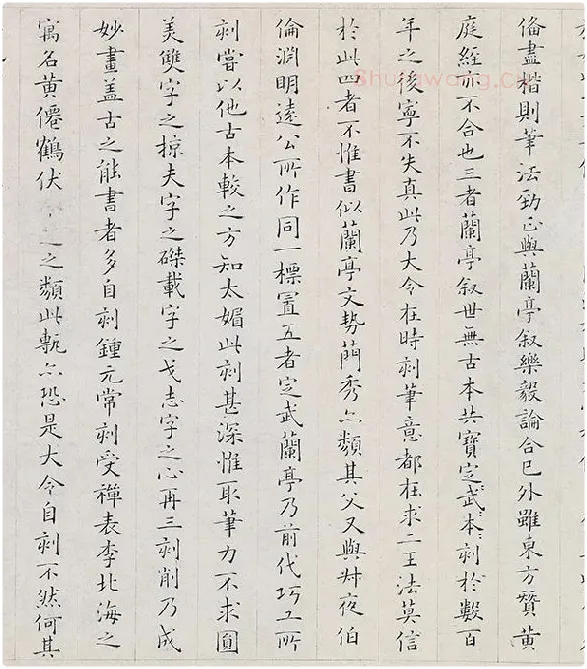 俻盡楷則筆法勁正與蘭亭叙樂毅論合已外雖東方贊黃
庭經亦不合也三者蘭亭叙世無古本共寶定武本〻刻於數百
年之後寧不失真此乃大令在時刻筆意都在求二王法莫信
於此四者不惟書似蘭亭文勢蕳秀亦類其父又與叔夜伯
倫淵明遠公所作同一標置五者定武蘭亭乃前代巧工所
刻嘗以他古本較之方知太媚此刻甚深惟取筆力不求圓
美雙字之掠夫字之磔載字之戈志字之心再三刻削乃成
妙畫蓋古之能書者多自刻鍾元常刻受禪表李北海之
寓名黃僊鶴伏之類此甎亦恐是大令自刻不然何其